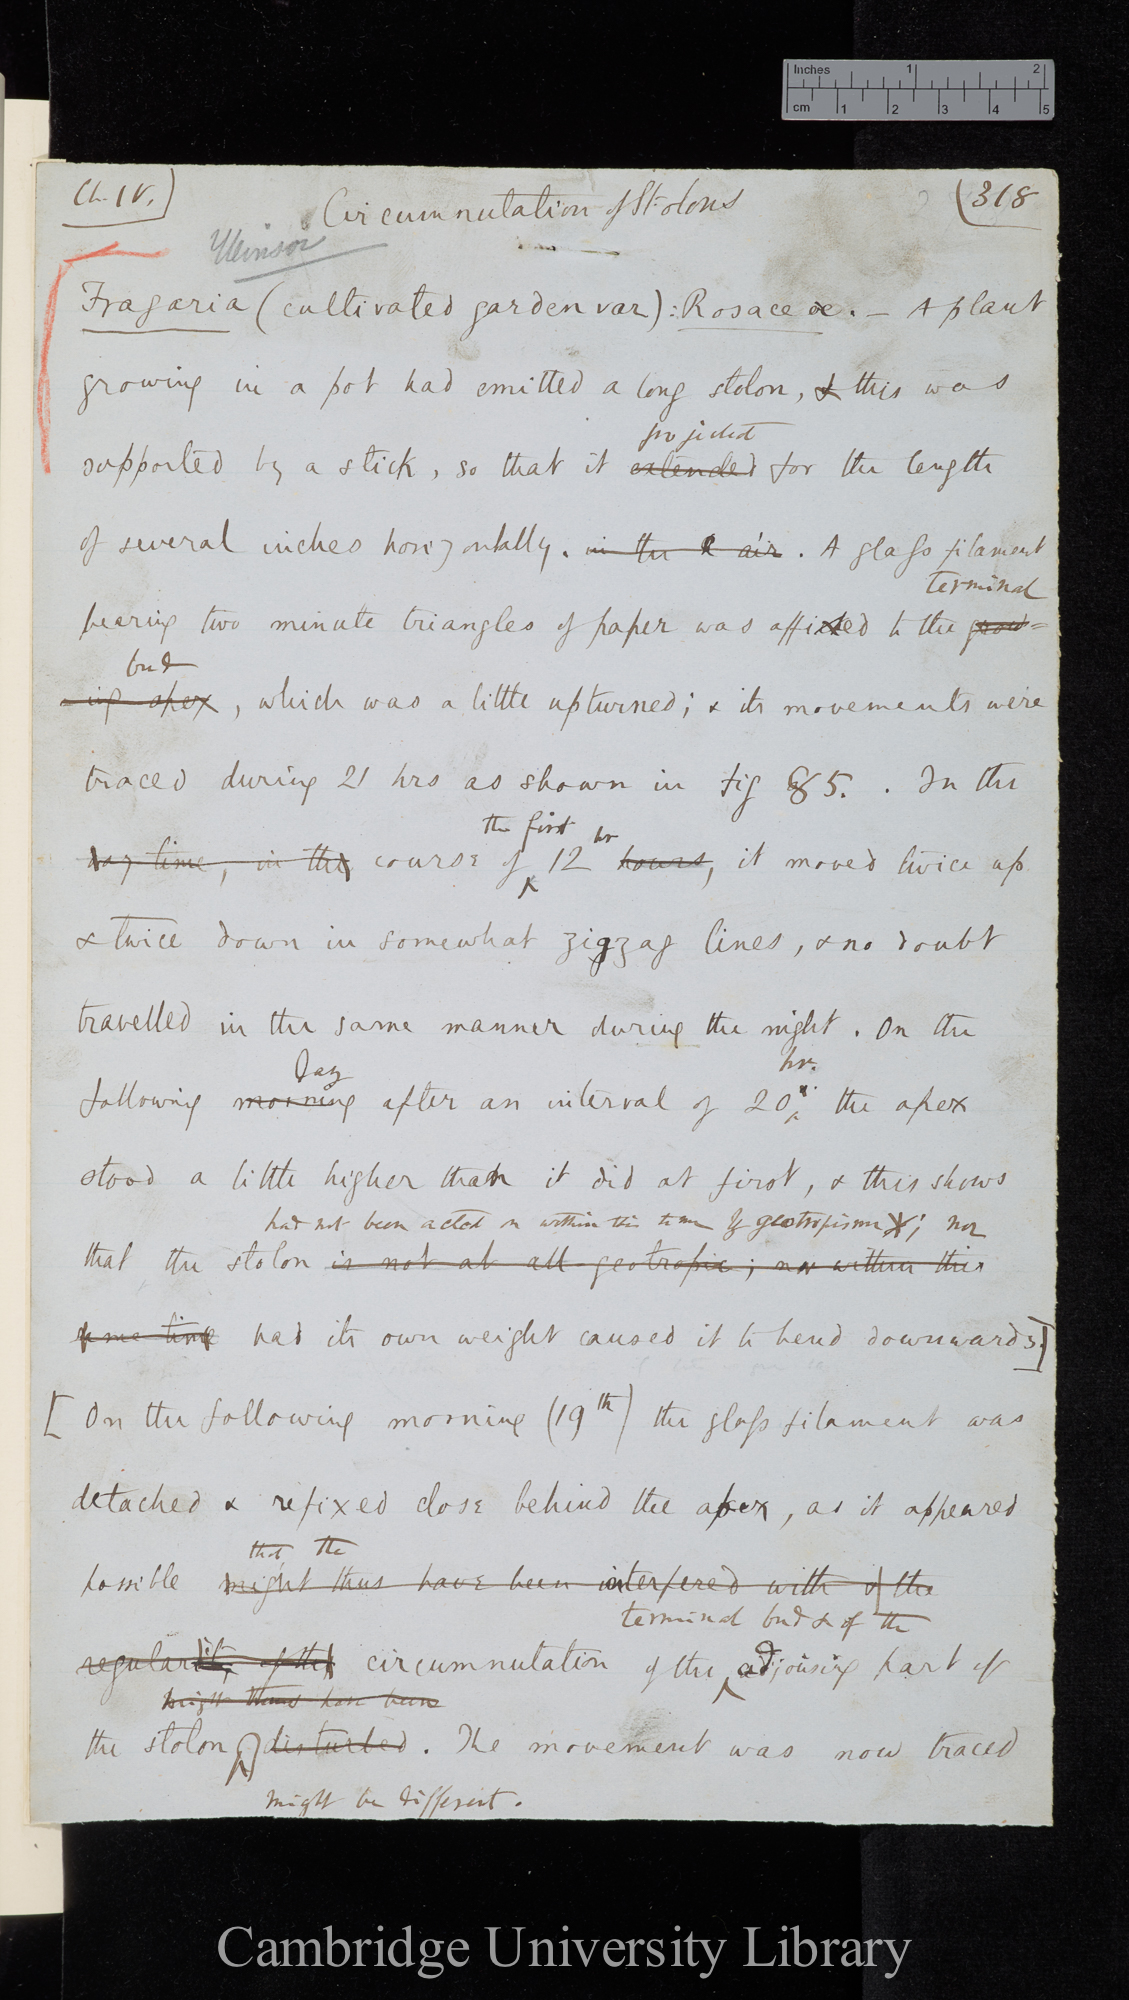 Inches 1 2
cm 1 2 3 4 5
Ch. IV.)
Circumnutation of Stolons
(318
Fragaria (cultivated garden var): Rosaceæ. — A plant
growing in a pot had emitted a long stolon, & this was
projected
supported by a stick, so that it extended for the length
of several inches horizontally. in the air. A glass filament
terminal
bearing two minute triangles of paper was affixed to the grow=
bud
ing apex, which was a little upturned; & its movements were
traced during 21 hrs as shown in Fig 85. . In the
the first hr
day time, in the course of 12 hours, it moved twice up
& twice down in somewhat zigzag lines, & no doubt
travelled in the same manner during the night. On the
day hr.
following morning after an interval of 20 the apex
stood a little higher than it did at first, & this shows
had not been acted on within this time by geotropism; nor
that the stolon is not at all geotropic; nor within this
same time had its own weight caused it to bend downwards.]
[On the following morning (19th) the glass filament was
detached & refixed close behind the apex, as it appeared
that the
possible might thus have been interfered with & the
terminal bud & of the
regularity of the circumnutation of the adjoining part of
might thus have been
the stolon disturbed. The movement was now traced
might be different.
Cambridge University Library